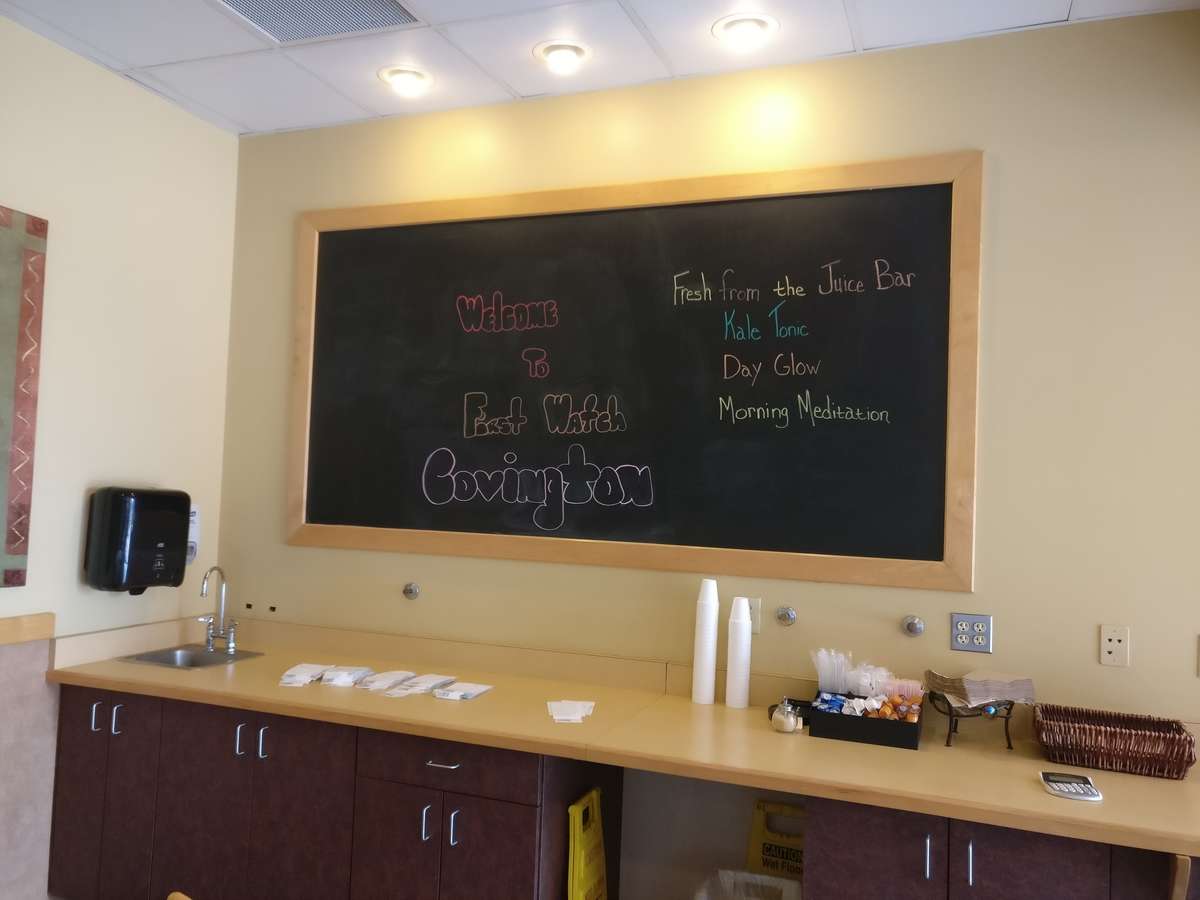 Welcome
To
First Watch
Covington
Fresh from the Juice Bar
Kale Tonic
Day Glow
Morning Meditation
CAUTION
Wet Floor